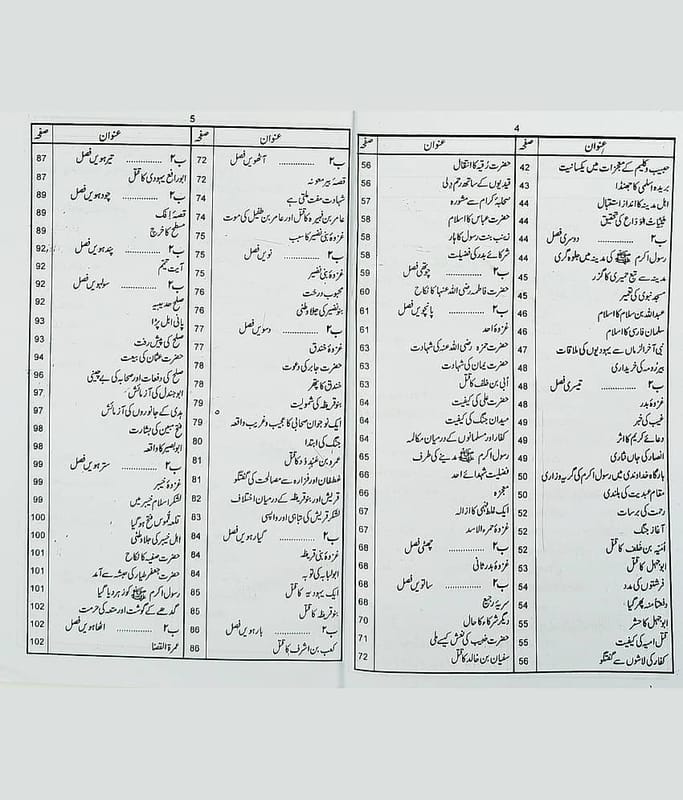 4
عنوان صفحہ
حبیب و کلیم کے معجزات میں یکسانیت 42
بریدہ اسلمی کا جھنڈا 43
اہل مدینہ کا انداز استقبال 44
ثنیات الوداع کی تحقیق 44
ب۲ ............ دوسری فصل 44
رسول اکرم ﷺ کی مدینہ میں جلوہ گری 44
مدینہ سے تبع حمیری کا گزر 45
مسجد نبوی کی تعمیر 45
عبداللہ بن سلام کا اسلام 46
سلمان فارسی کا اسلام 46
نبی آخر الزماں سے یہودیوں کی ملاقات 47
بیر رومہ کی خریداری 48
ب۲ ............ تیسری فصل 48
غزوۂ بدر 48
غیب کی خبر 49
دعائے کریم کا اثر 49
انصار کی جاں نثاری 49
بارگاہ خداوندی میں رسول اکرم کی گریہ وزاری 50
مقام عبدیت کی بلندی 50
رحمت کی برسات 52
آغاز جنگ 52
اُمیّہ بن خلف کا قتل 52
ابوجہل کا قتل 53
فرشتوں کی مدد 54
دفعتاً منہ پھر گیا 54
ابوجہل کا حشر 55
قتل امیہ کی کیفیت 55
کفار کی لاشوں سے گفتگو 56
عنوان صفحہ
حضرت رُقیہ کا انتقال 56
قیدیوں کے ساتھ رحم دلی 56
صحابہ کرام سے مشورہ 57
حضرت عباس کا اسلام 58
زینب بنت رسول کا ہار 58
شرکائے بدر کی فضیلت 58
ب۲ ............ چوتھی فصل 59
حضرت فاطمہ رضی اللہ عنہا کا نکاح 60
ب۲ ............ پانچویں فصل 61
غزوۂ احد 61
حضرت حمزہ رضی اللہ عنہ کی شہادت 63
حضرت یمان کی شہادت 63
اُبی بن خلف کا قتل 63
حضرت علی کی کیفیت 64
میدان جنگ کی کیفیت 64
کفار اور مسلمانوں کے درمیان مکالمہ 64
رسول اکرم ﷺ مدینے کی طرف 65
فضیلت شہدائے احد 66
معجزہ 66
ایک غلط فہمی کا ازالہ 67
غزوۂ حمرہ الاسد 67
ب۲ ............ چھٹی فصل 68
غزوۂ بدر ثانی 68
ب۲ ............ ساتویں فصل 68
سریہ رجیع 68
دیگر شرکاء کا حال 70
حضرت خبیب کی نعش کیسے ملی 71
سفیان بن خالد کا قتل 72
5
عنوان صفحہ
ب۲ ............ آٹھویں فصل 72
قصۂ بیر معونہ 72
شہادت مفت ملتی ہے 74
عامر بن فہیرہ کا قتل اور عامر بن طفیل کی موت 74
غزوۂ بنی نضیر کا سبب 75
ب۲ ............ نویں فصل 75
غزوۂ بنی نضیر 75
محبوب درخت 76
بنو نضیر کی جلاوطنی 76
ب۲ ............ دسویں فصل 77
غزوۂ خندق 77
حضرت جابر کی دعوت 78
خندق کا پتھر 78
بنو قریظہ کی شمولیت 79
ایک نوجوان صحابی کا عجیب و غریب واقعہ 79
جنگ کی ابتدا 80
عمرو بن عَبدِوُد کا قتل 81
غطفان اور فزارہ سے مصالحت کی گفتگو 81
قریش اور بنو قریظہ کے درمیان اختلاف 82
لشکر قریش کی تباہی اور واپسی 83
ب۲ ............ گیارہویں فصل 84
غزوۂ بنی قریظہ 84
ابولبابہ کی توبہ 84
ایک یہودیہ کا قتل 85
بنو قریظہ کا قتل 85
ب۲ ............ بارہویں فصل 86
کعب بن اشرف کا قتل 86
عنوان صفحہ
ب۲ ............ تیرہویں فصل 87
ابورافع یہودی کا قتل 87
ب۲ ............ چودہویں فصل 89
قصۂ اِفک 89
مسطح کا خرچ 89
ب۲ ............ پندرہویں فصل 92
آیت تیمّم 92
ب۲ ............ سولہویں فصل 92
صلح حدیبیہ 92
پانی ابل پڑا 93
صلح کی پیش رفت 93
حضرت عثمان کی بیعت 94
صلح کی دفعات اور صحابہ کی بے چینی 96
ابوجندل کی آزمائش 97
ہدی کے جانوروں کی آزمائش 97
فتح مبین کی بشارت 98
ابوبصیر کا واقعہ 98
ب۲ ............ سترہویں فصل 99
غزوۂ خیبر 99
لشکر اسلام خیبر میں 99
قلعہ قموص فتح ہوگیا 100
اہل خیبر کی جلاوطنی 100
حضرت صفیہ کا نکاح 101
حضرت جعفر طیار کی حبشہ سے آمد 101
رسول اکرم ﷺ کو زہر دیا گیا 101
گدھے کے گوشت اور متعہ کی حرمت 102
ب۲ ............ اٹھارہویں فصل 102
عمرۃ القضا 102